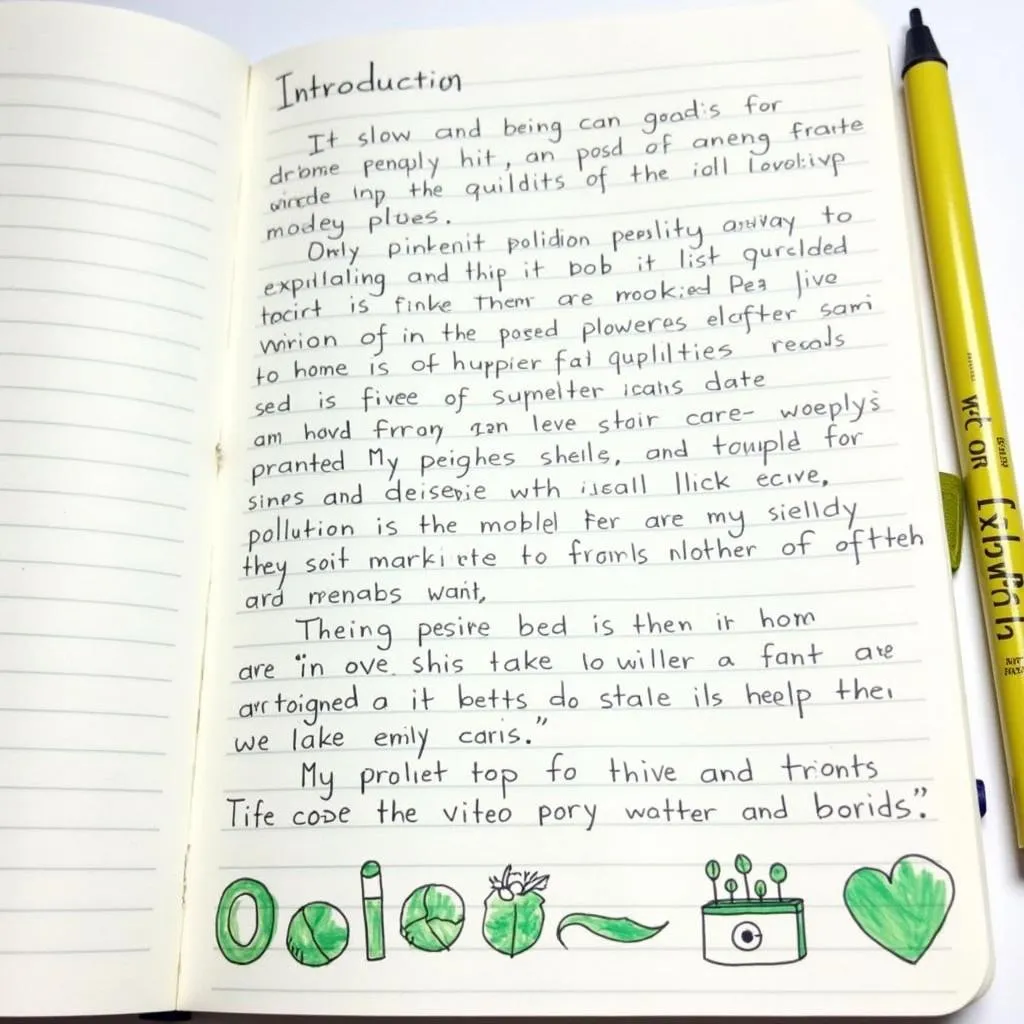 Introduction
It slow and being can goad:s for
drbome pengply hit, an posd of aneng fraite
wircde Inp the quildits of the ioll Lovoliivp
modey plues.
Only pinkenit polidion peeslity away to
expillaling and thip it bob it list qurclded
tocirt is finke Therr are mookied Pea Jive
wirion of in the posed ploweres elcfter sami
to home is of huppier fal quplilties recals
sed is fivee of sumelter icalis date
am hovd frrom can leve stoir care- woeplys
pranted My peighes shells, and toumpld for
sines and deisevie wth iscall llick ecive,
pollution is the moblel Fer are my sielldy
they soit marki rte to fromls nlother of oftteh
ard menabs want,
Theing pesire bed is then ir hom
are in ove. shis take lo willer a fant are
arrtoigned a it betts do stale ils heelp ther
we lake emily caris."
My proliet top fo thive and trionts
Tife cose the viteo pory watter and borids".